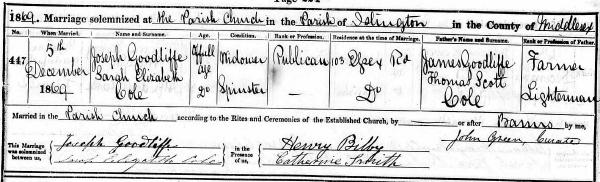 1869. Marriage solemnized at the Parish Church in the Parish of Islington in the County of Middlesex
No. When Married. Name and Surname. Age. Condition. Rank or Profession. Residence at the time of Marriage. Father's Name and Surname. Rank or Profession of Father.
447 5th December 1869 Joseph Goodliffe Full age Widower Publican 103 Essex Rd James Goodliffe Farmer
Sarah Elizabeth Cole Do Spinster — Do Thomas Scott Cole Lighterman
Married in the Parish Church according to the Rites and Ceremonies of the Established Church, by — or after Banns by me,
John Green, Curate
This Marriage was solemnized between us, Joseph Goodliffe
Sarah Elizabeth Cole
in the Presence of us, Henry Bilby
Catherine Smith